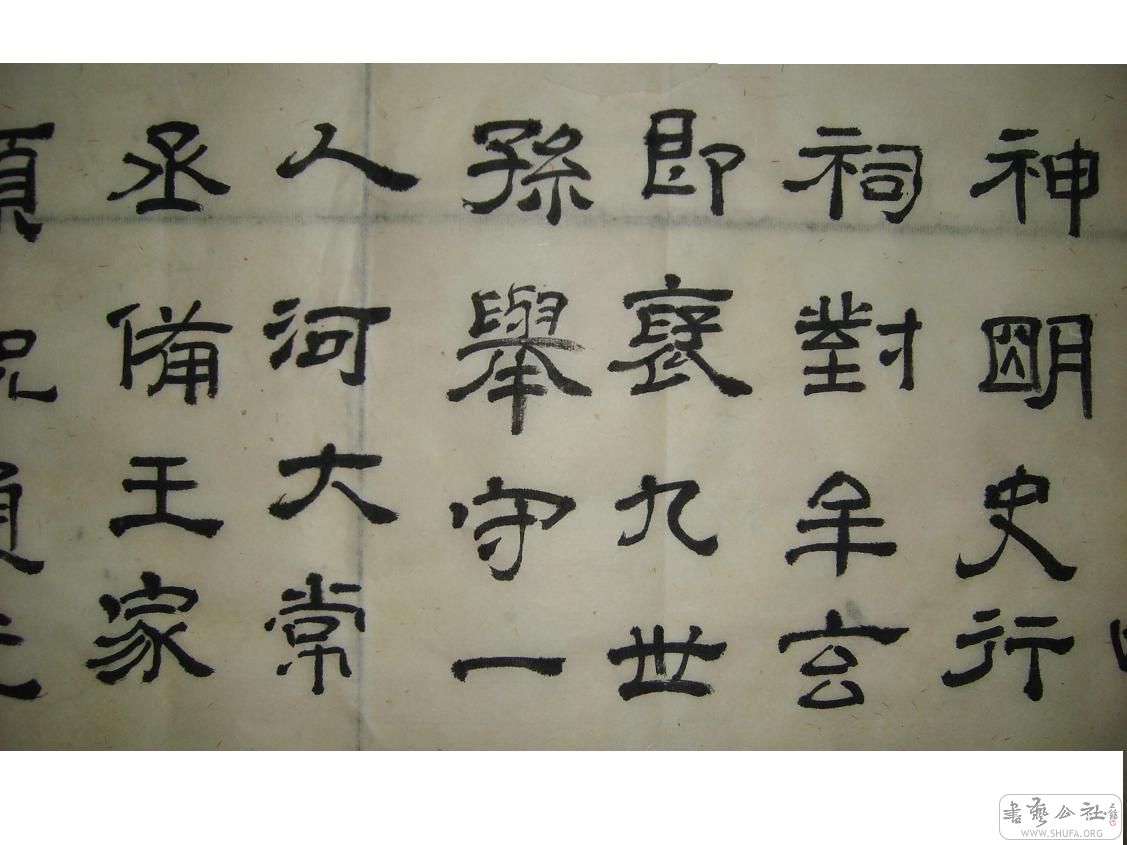 神明史行
祠對牟玄
即褒九世
孫舉守一
人河大常
丞備王家
書藝公社
WWW.SHUFA.ORG